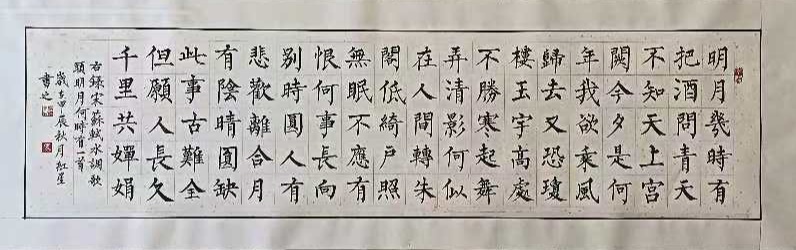 明月幾時有
把酒問青天
不知天上宮
闕今夕是何
年我欲乘風
歸去又恐瓊
樓玉宇高處
不勝寒起舞
弄清影何似
在人間轉朱
閣低綺戶照
無眠不應有
恨何事長向
別時圓人有
悲歡離合月
有陰晴圓缺
此事古難全
但願人長久
千里共嬋娟
右錄宋蘇軾水調歌
頭明月何時有一首
歲在甲辰秋月紅星
書之